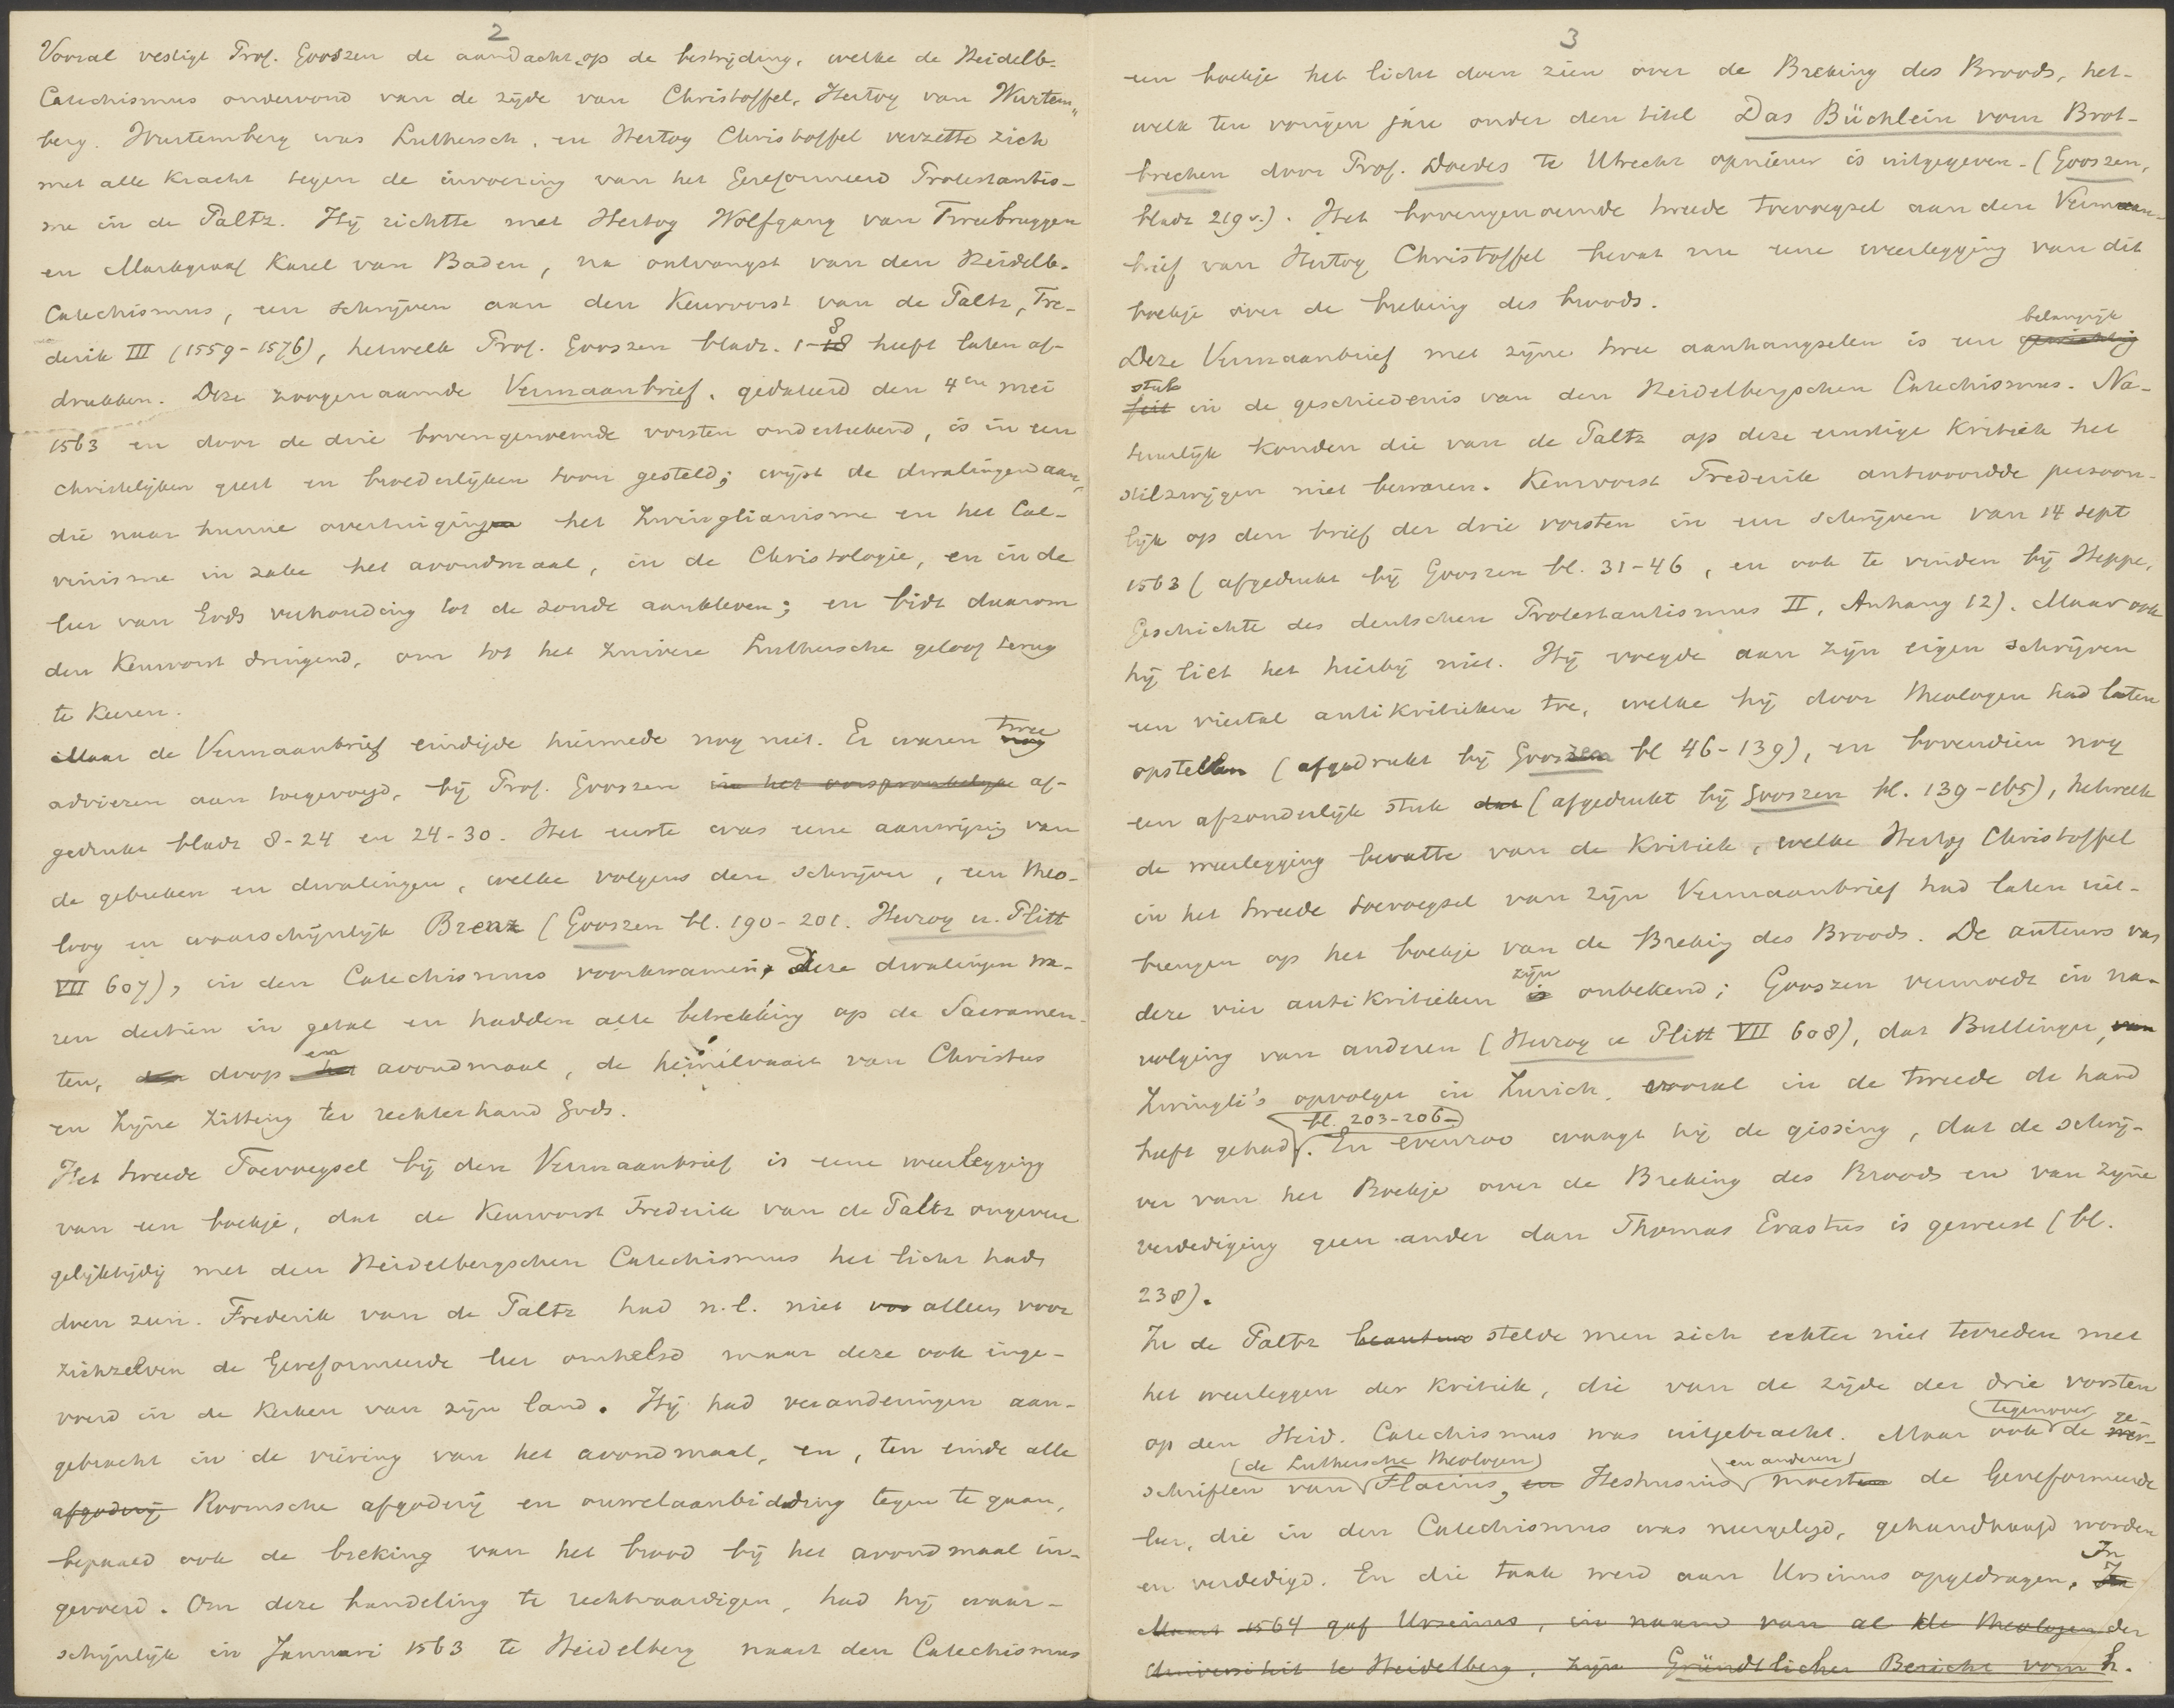 2
Vooral vestigt Prof. Gooszen de aandacht op de bestrijding, welke de Heidelb.
Catechismus ondervond van de zijde van Christoffel, Hertog van Wurtem„
berg. Wurtemberg was Luthersch, en Hertog Christoffel verzette zich
met alle kracht tegen de invoering van het Gereformeerd Protestantis-
me in de Paltz. Hij richtte met Hertog Wolfgang van Tweebruggen
en Markgraaf Karel van Baden, na ontvangst van den Heidelb.
Catechismus, een schrijven aan den Keurvorst van de Paltz, Fre-
derik III (1559-1576), hetwelk Prof. Gooszen bladz. 1-8 heeft laten af-
drukken. Deze zoogenaamde Vermaanbrief, gedateerd den 4en mei
1563 en door de drie bovengenoemde vorsten onderteekend, is in een
christelijken geest en broederlijken toon gesteld; wijst de dwalingen aan,
die naar hunne overtuiging het Zwinglianisme en het Cal-
vinisme in zake het avondmaal, in de Christologie, en in de
leer van Gods verhouding tot de zonde aankleven; en bidt daarom
den Keurvorst dringend, om tot het zuivere Luthersche geloof terug
te keeren.
Maar de Vermaanbrief eindigde hiermede nog niet. Er waren twee
adviezen aan toegevoegd, bij Prof. Gooszen in het oorspronkelijke af-
gedrukt bladz 8-24 en 24-30. Het eerste was eene aanwijzing van
de gebreken en dwalingen, welke volgens den schrijver, een theo-
loog en waarschijnlijk Brenz (Gooszen bl. 190-201. Herzog u. Plitt
VII 607), in den Catechismus voorkwamen; Deze dwalingen wa-
ren dertien in getal en hadden alle betrekking op de Sacramen-
ten, doop en avondmaal, de hemelvaart van Christus
en Zijne zitting ter rechterhand Gods.
Het tweede Toevoegsel bij den Vermaanbrief is eene weerlegging
van een boekje, dat de Keurvorst Frederik van de Paltz ongeveer
gelijktijdig met den Heidelbergschen Catechismus het licht had
doen zien. Frederik van de Paltz had n.l. niet voo alleen voor
zichzelven de Gereformeerde leer omhelsd maar deze ook inge-
voerd in de kerken van zijn land. Hij had veranderingen aan-
gebracht in de viering van het avondmaal, en, ten einde alle
afgoderij Roomsche afgoderij en ouwelaanbidding tegen te gaan,
bepaald ook de breking van het brood bij het avondmaal in-
gevoerd. Om deze handeling te rechtvaardigen, had hij waar-
schijnlijk in Januari 1563 te Heidelberg naast den Catechismus
3
een boekje het licht doen zien over de Breking des Broods, het-
welk ten vorigen jare onder den titel Das Büchlein vom Brot-
brechen door Prof. Doedes te Utrecht opnieuw is uitgegeven. (Gooszen,
bladz 219 v.). Het bovengenoemde tweede toevoegsel aan den Vermaan-
brief van Hertog Christoffel bevat nu eene weerlegging van dit
boekje over de breking des broods.
Deze Vermaanbrief met zijne twee aanhangselen is een gewichtig belangrijk
feit stuk in de geschiedenis van den Heidelbergschen Catechismus. Na-
tuurlijk konden die van de Paltz op deze ernstige Kritiek het
stilzwijgen niet bewaren. Keurvorst Frederik antwoordde persoon-
lijk op den brief der drie vorsten in een schrijven van 14 sept
1563 (afgedrukt bij Gooszen bl. 31-46, en ook te vinden bij Heppe,
Geschichte des deutschen Protestantismus II, Anhang 12). Maar ook
hij liet het hierbij niet. Hij voegde aan zijn eigen schrijven
een viertal antikritieken toe, welke hij door theologen had laten
opstellen (afgedrukt bij Gooszen bl 46-139), en bovendien nog
een afzonderlijk stuk dat (afgedrukt bij Gooszen bl. 139-165), hetwelk
de weerlegging bevatte van de Kritiek, welke Hertog Christoffel
in het tweede toevoegsel van zijn Vermaanbrief had laten uit-
brengen op het boekje van de Breking des Broods. De auteurs van
deze vier antikritieken is zijn onbekend; Gooszen vermoedt in na-
volging van anderen (Herzog u Plitt VII 608), dat Bullinger, van
Zwingli's opvolger in Zurich, vooral in de tweede de hand
heeft gehad bl. 203-206. En evenzoo waagt hij de gissing, dat de schrij-
ver van het Boekje over de Breking des Broods en van zijne
verdediging geen ander dan Thomas Erastus is geweest (bl.
238).
In de Paltz beantwo stelde men zich echter niet tevreden met
het weerleggen der Kritiek, die van de zijde der drie vorsten
op den Heid. Catechismus was uitgebracht. Maar ook tegenover de ge-
schriften van (de Luthersche theologen) Flacius, en Heshusius en anderen moest de Gereformeerde
leer, die in den Catechismus was neergelegd, gehandhaafd worden
en verdedigd. En die taak werd aan Ursinus opgedragen. In
Maart 1564 gaf Ursinus, in naam van al de theologen der
Universiteit te Heidelberg, zijn Gründtlicher Bericht vom h.